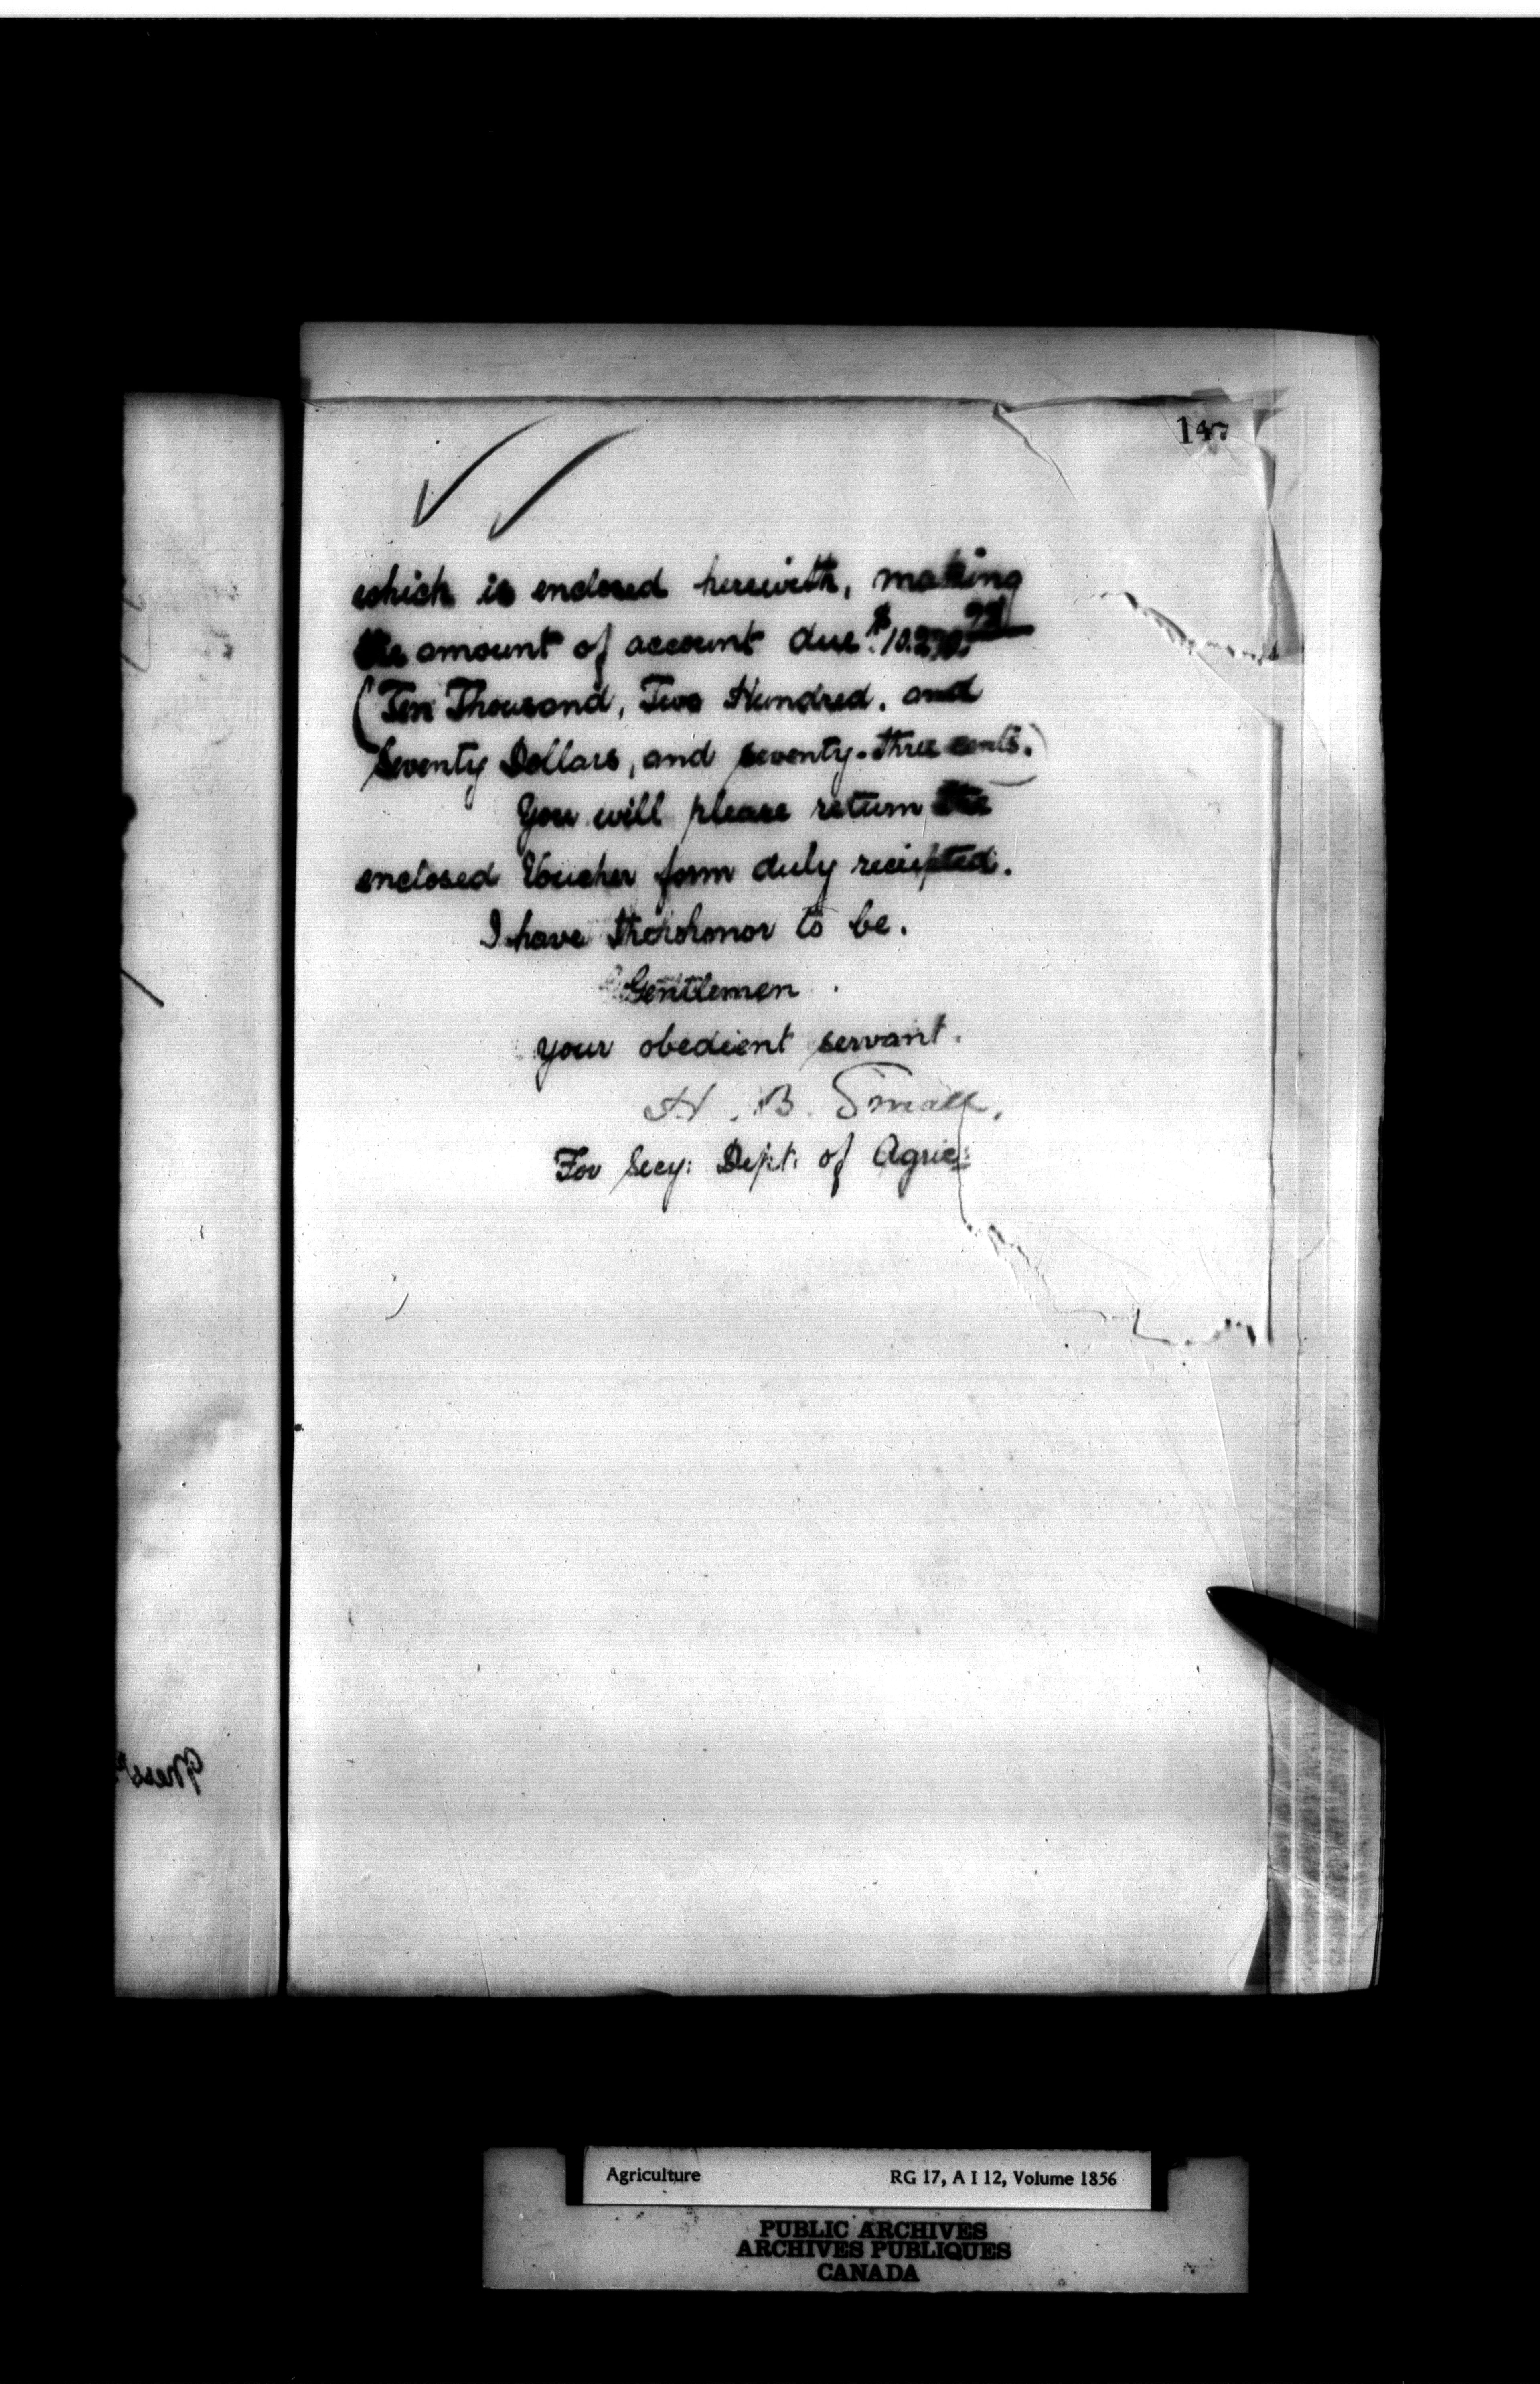 147
which is enclosed herewith, making
the amount of account due. $10.270.73
(Ten Thousand, Two Hundred. and
Seventy Dollars, and seventy-three cents.)
You will please return the
enclosed Voucher form duly reciepted.
I have the honor to be.
Gentlemen.
your obedient servant.
H. B. Small.
For Secy: Dept: of Agric:
Messrs
Agriculture RG 17, A I 12, Volume 1856
PUBLIC ARCHIVES
ARCHIVES PUBLIQUES
CANADA